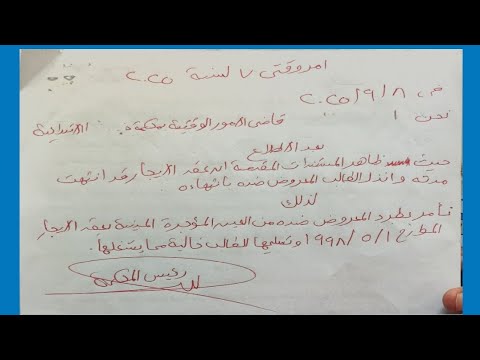 امر وقتى ٧ لسنة ٢٠٢٥
فى ٨/٩/٢٠٢٥
نحن / قاضى الامور الوقتية بمحكمة . الابتدائية
بعد الاطلاع
حيث ظاهر المستندات المقدمة ان عقد الايجار قد انتهت
مدته وانذر الطالب المعروض ضده بانتهاءه
لذلك
نأمر بطرد المعروض ضده من العين المؤجرة المبينة بعقد الايجار
المؤرخ ١/٥/١٩٩٨ وتسليمها للطالب خالية مما يشغلها.
رئيس المحكمة